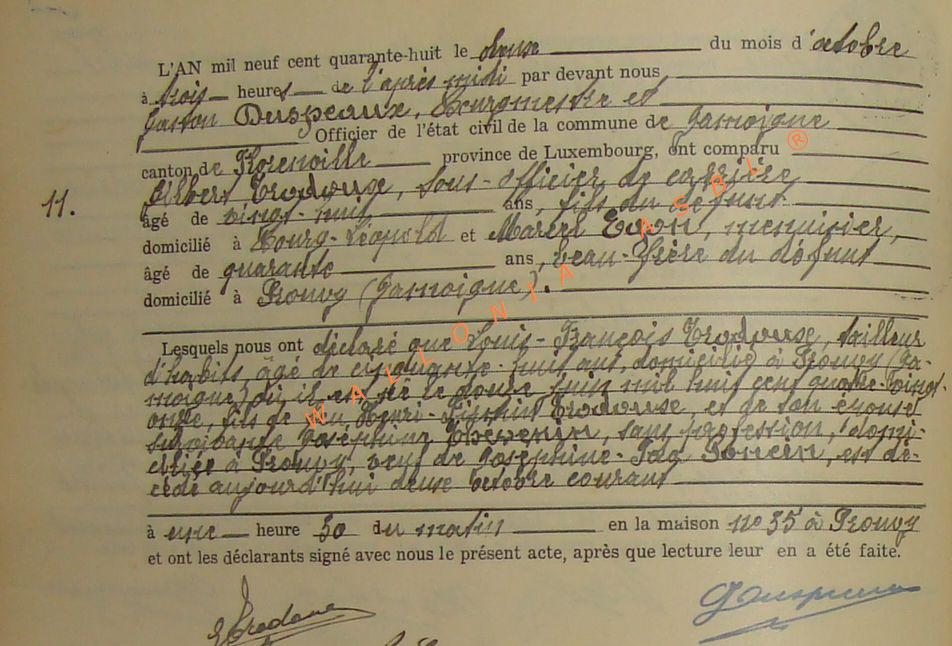 L'AN mil neuf cent quarante-huit le douze du mois d'octobre
à trois heures de l'après midi par devant nous
Gaston Duspeaux, Bourgmestre et
Officier de l'état civil de la commune de Jamoigne
canton de Florenville province de Luxembourg, ont comparu
11. Albert Trodouse, sous-officier de carrière
âgé de vingt-huit ans, fils du défunt
domicilié à Bourg-Léopold et Marcel Egon, menuisier,
âgé de quarante ans, beau-frère du défunt
domicilié à Prouvy (Jamoigne).
Lesquels nous ont déclaré que Louis-François Trodouse, tailleur
d'habits âgé de cinquante-huit ans, domicilié à Prouvy (Ja-
moigne) où il est né le douze juin mil huit cent quatre-vingt
onze, fils de feu Henri- Trodouse, et de son épouse
survivante Joséphine Thévenin, sans profession, domi-
ciliée à Prouvy, veuf de Joséphine- est dé-
cédé aujourd'hui douze octobre courant
à une heure 30 du matin en la maison n° 35 à Prouvy
et ont les déclarants signé avec nous le présent acte, après que lecture leur en a été faite.
WALLONIA ASBL ®